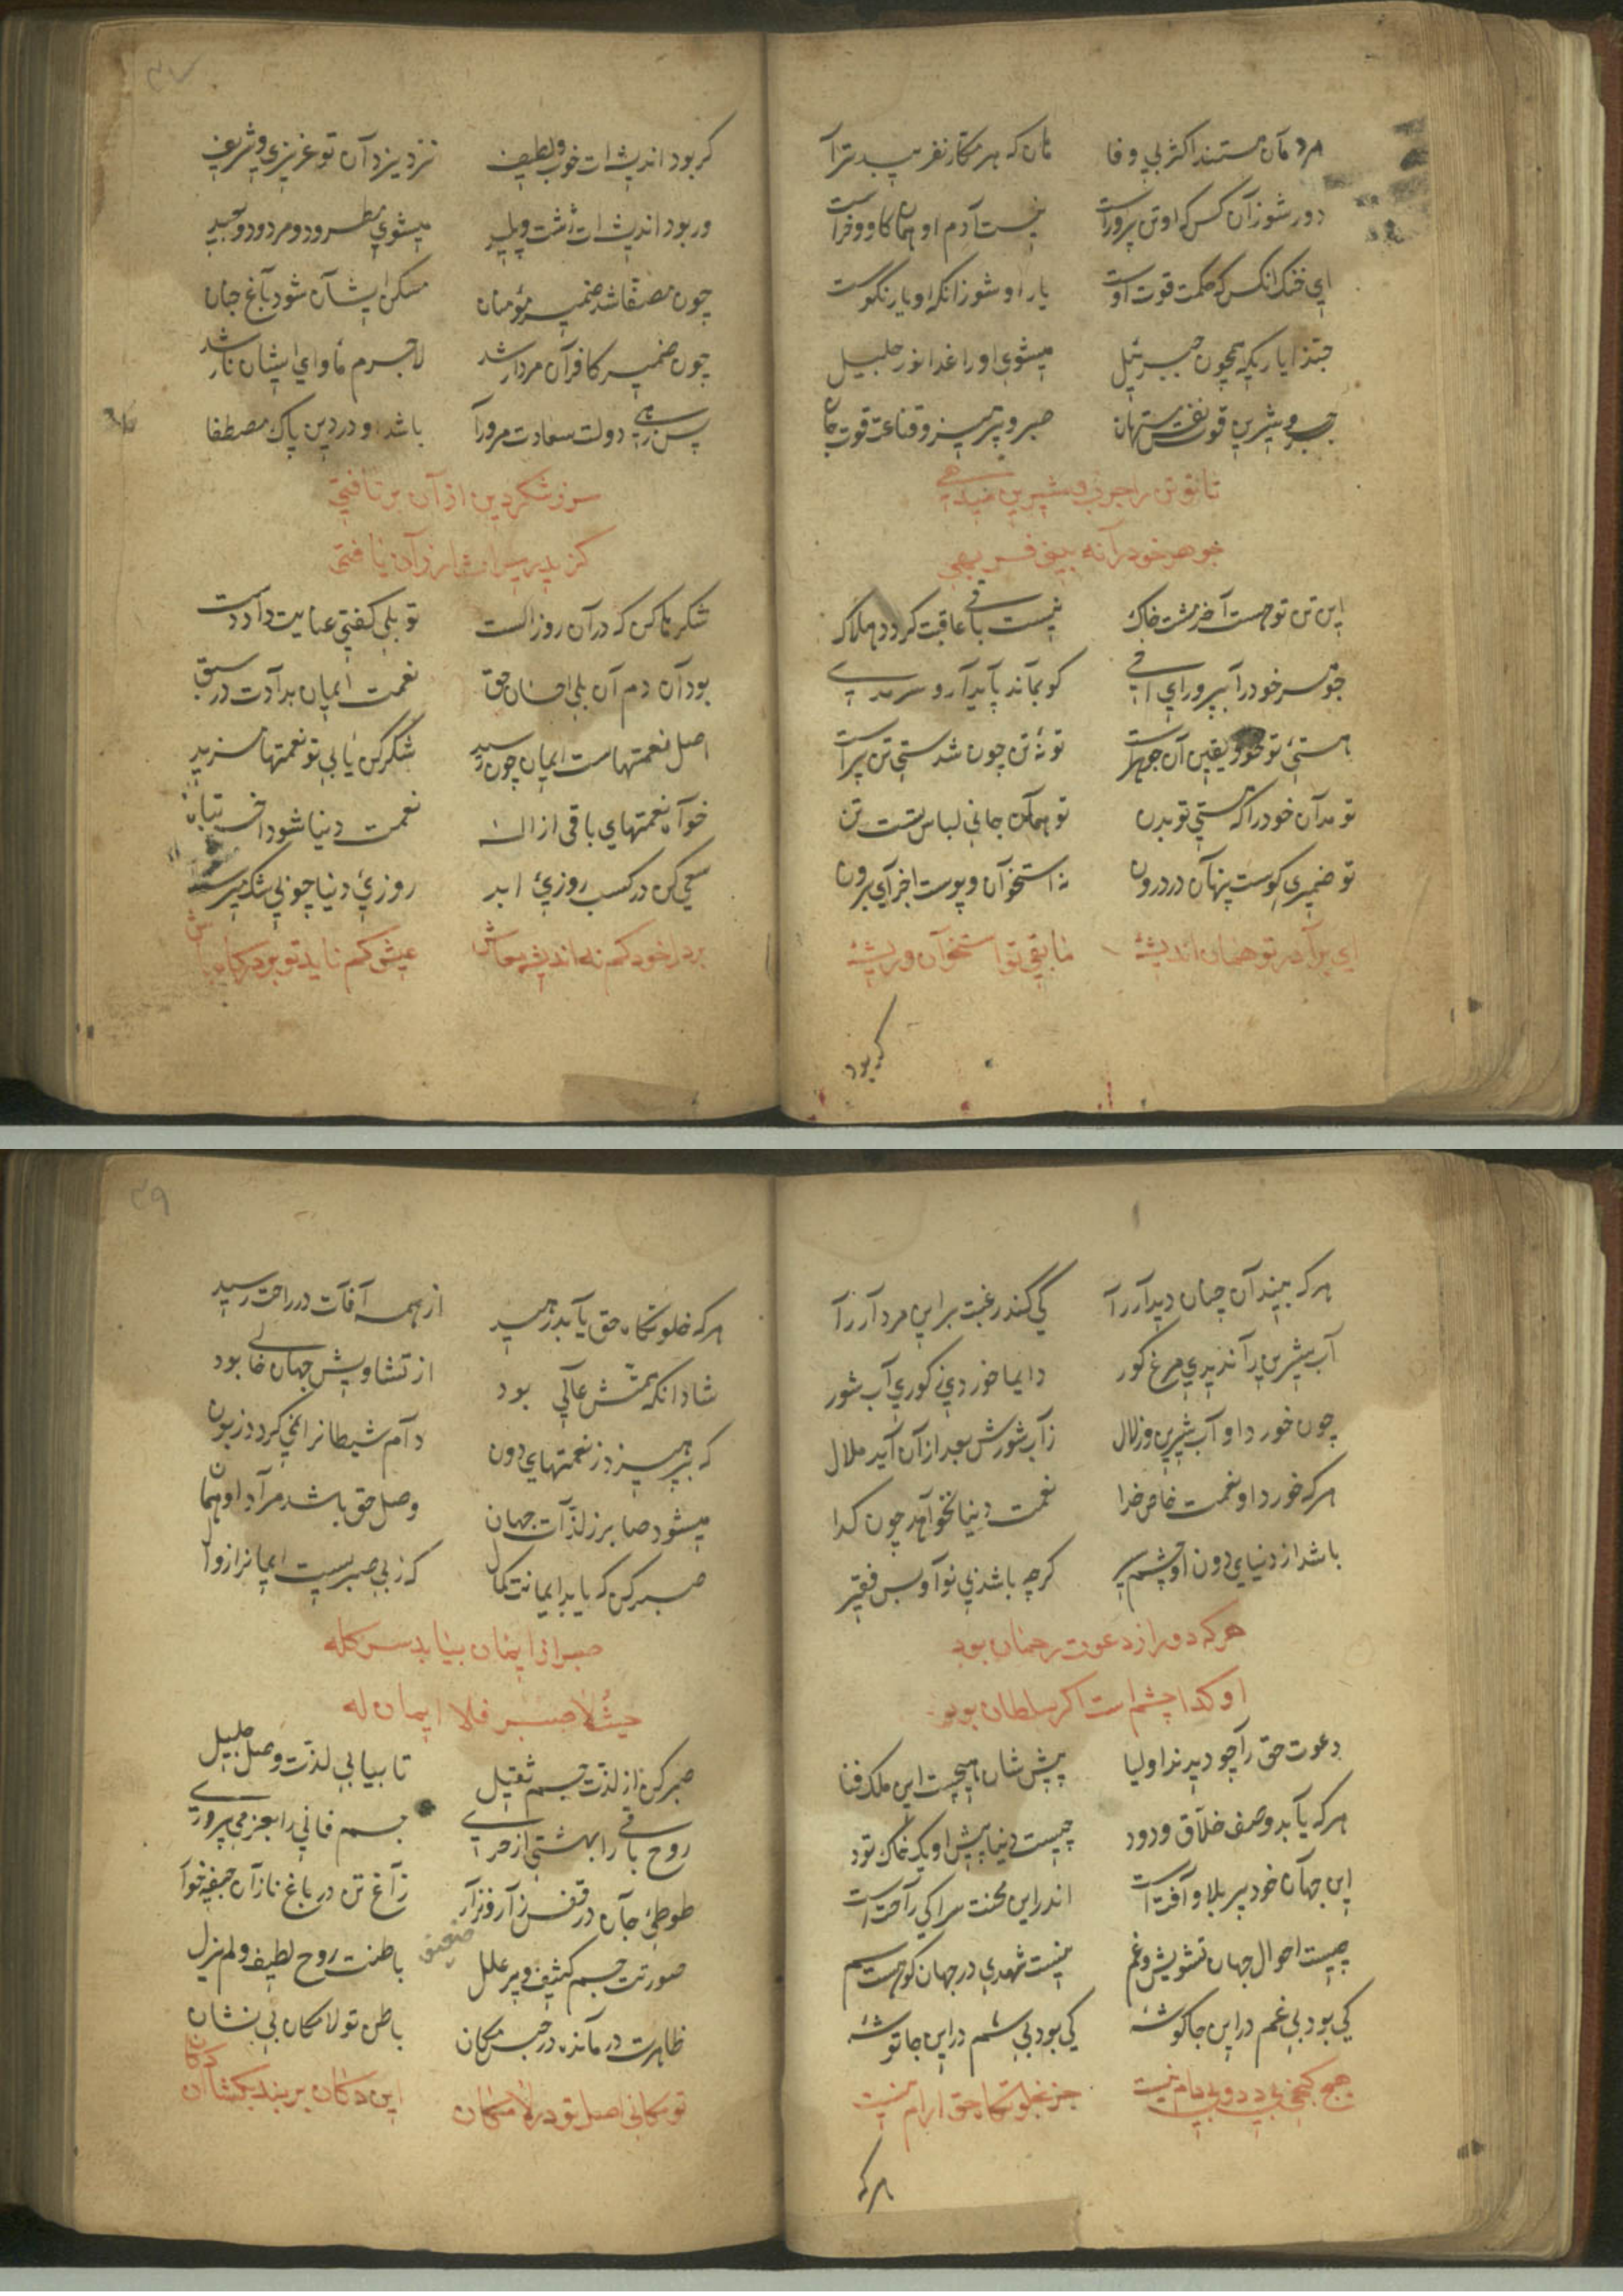 مردمان هستند اکثر بی وفا    هان که هر مکار نفریبد ترا
دور شو زآن کس که او تن پرورست    نیست آدم او همان کاو و خرست
ای خنک آنکس که حکمت قوت اوست    یار او شو زانکه او یار نکوست
حبذا یاریکه همچون جبرئیل    میشوی او را غدا نور جلیل
چرب و شیرین قوت نفس    صبر و پرهیز و قناعت قوت جان
تا تو تن را چرب و شیرین میدهی
جوهر خود را نه بینی فربهی
این تن تو هست آخر مشت خاک    نیست باقی عاقبت کردد هلاک
جوهر خود را بپرور ای اخی    کو بماند پایدار و سرمدی
هستی تو خود یقین آن جوهرست    تو نه تن چون شدستی تن پرست
تو مدان خود را که هستی تو بدن    تو همان جانی لباس تست تن
تو ضمیری کوست پنهان در درون    نه استخوان و پوست اخر آی برون
ای برادر تو همان اندیشهٔ    مابقی تو استخوان و ریشهٔ
که بود
۳۷
کر بود اندیشه ات خوب و لطیف    نزد یزدان تو عزیزی و شریف
ور بود اندیشه ات زشت و پلید    میشوی مطرود و مردود و
چون مصفا شد ضمیر مؤمنان    مسکن ایشان شود باغ جنان
چون ضمیر کافران مردار شد    لاجرم مأوای ایشان نار شد
پس زهی دولت سعادت مرورا    باشد او در دین پاک مصطفا
سر ز شکر دین از آن بر تافتی
کز پدر میراث ارزان یافتی
شکرها کن که در آن روز الست    تو بلی کفتی عنایت دادت
بود آن دم آن بلی احسان حق    نعمت ایمان بدادت در سبق
اصل نعمتهاست ایمان چون رسید    شکر کن یابی تو نعمتها مزید
خواه نعمتهای باقی از اله    نعمت دنیا شود اخر تباه
سعی کن در کسب روزیٔ ابد    روزیٔ دنیا چو بی شک میرسد
بر دل خود کم نه اندیشه معاش    عیش کم ناید تو بر درکاه باش
هر که بیند آن چنان دیدار را    کی کند رغبت بر این مردار را
آب شیرین را ندیدی مرغ کور    دایما خوردی ز کوری آب شور
چون خورد او آب شیرین و زلال    زآب شورش بعد از آن آید ملال
هر که خورد او نعمت خاص خدا    نعمت دنیا نخواهد چون کدا
باشد از دنیای دون او چشم سیر    کرچه باشد بی نوا و بس فقیر
هر که دور از دعوت رحمان بود
او کدا چشم است اکر سلطان بود
دعوت حق را چو دیدند اولیا    پیش شان هیچست این ملک فنا
هر که یابد وصف خلاق ودود    چیست دنیا پیش او یک خاک تود
این جهان خود پر بلا و آفت است    اندر این محنت سرا کی راحت است
چیست احوال جهان تشویش و غم    نیست شهدی در جهان کو هست سم
کی بود بی غم در این جا کوشهٔ    کی بود بی سم در این جا توشهٔ
هیچ کنجی بی دد و بی دام نیست    جز بخلوتگاه حق آرام نیست
هر که
۳۹
هر که خلوتگاه حق یابد رهید    از همه آفات در راحت رسید
شاد آنکه همتش عالی بود    از تشاویش جهان خالی بود
که بپرهیزد ز نعمتهای دون    دام شیطانرا نمی کردد زبون
میشود صابر ز لذات جهان    وصل حق باشد مراد او همان
صبر کن که یابد ایمانت کمال    که ز بی صبریست ایمانرا زوال
صبر از ایمان بیابد سر کله
حیث لا صبر فلا ایمان له
صبر کن از لذت جسم ثقیل    تا بیابی لذت وصل جلیل
روح باقی را بهشتی از خری    جسم فانی را بعز می پروری
طوطیٔ جان در قفس زار و نزار    زاغ تن در باغ نازان جیفه خوار
صورتت جسم کثیف و پر علل    باطنت روح لطیف و لم یزل
ظاهرت درمانده در حبس مکان    باطن تو لامکان بی نشان
تو مکانی اصل تو در لامکان    این دکان بربند بکشا آن دکان